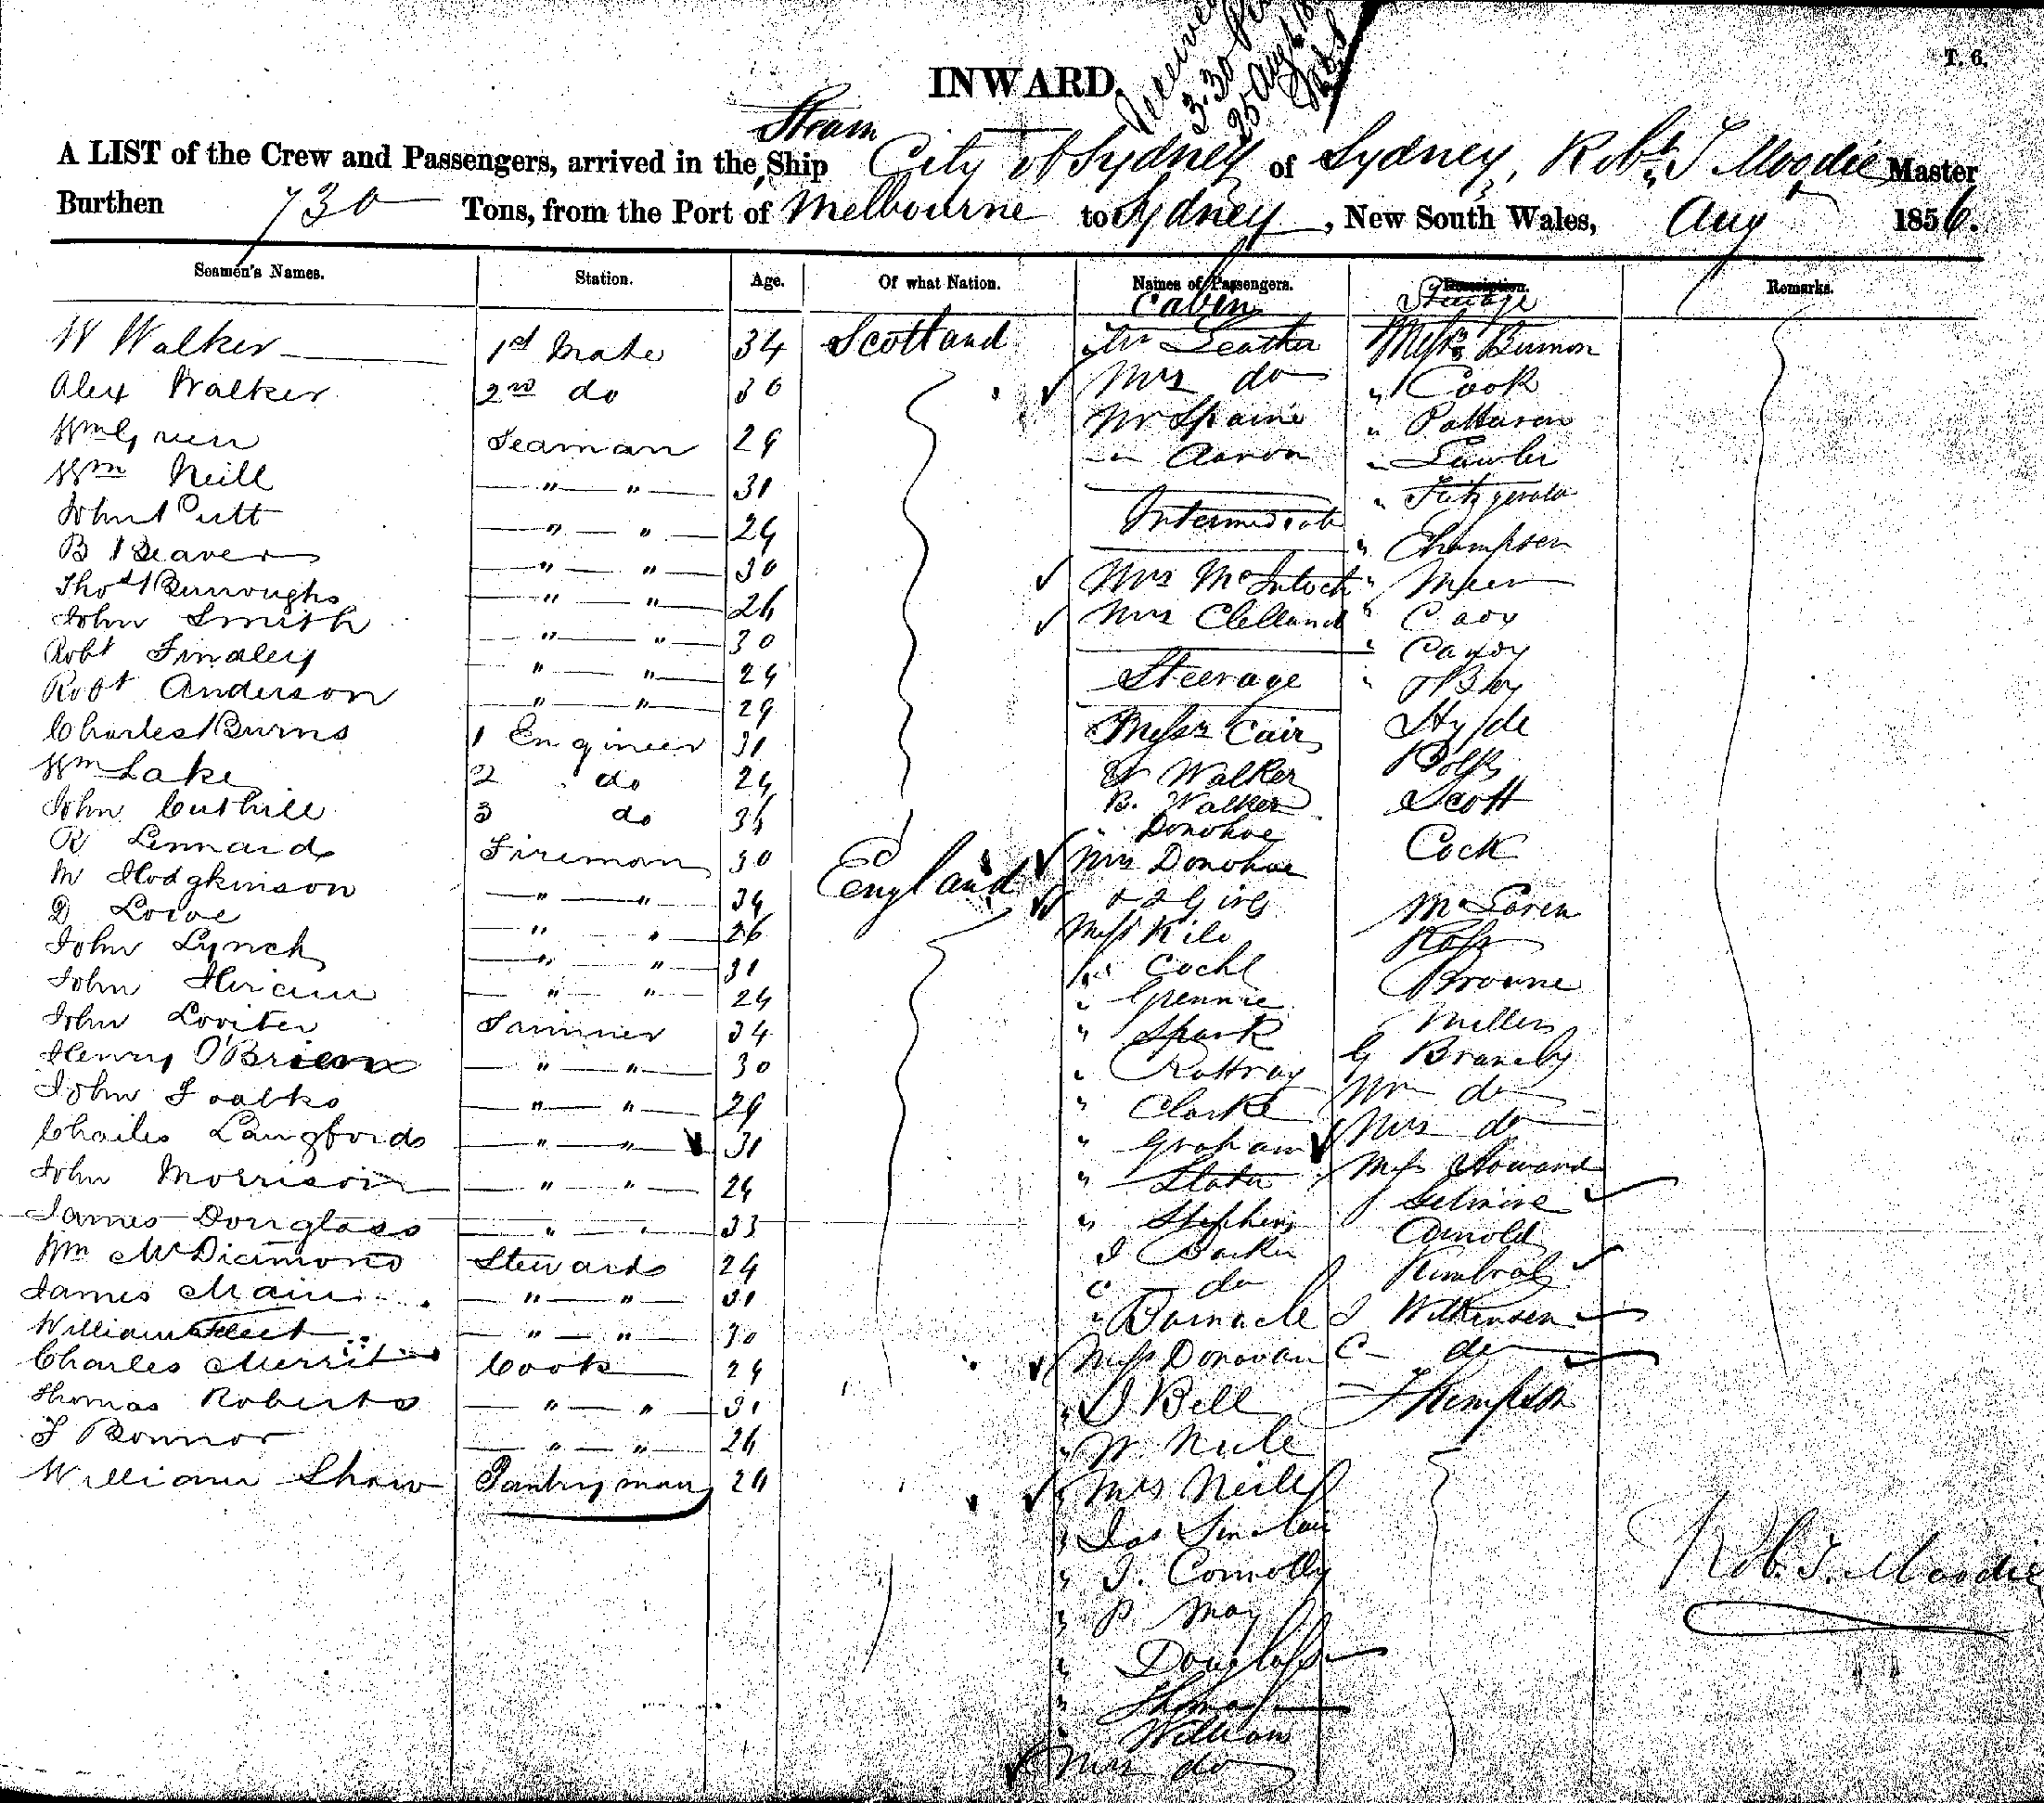 T. 6.
INWARD.
3.30
25 Aug
Steam
A LIST of the Crew and Passengers, arrived in the Ship City of Sydney of Sydney, Robt. T Moodie Master
Burthen 730 Tons, from the Port of Melbourne to Sydney, New South Wales, Aug 1856.
Seamen's Names. Station. Age. Of what Nation. Names of Passengers. Description. Remarks.
Cabin Steerage
W Walker 1st Mate 34 Scotland
Alex Walker 2nd do 30 Mrs do " Cook
Wm Green Seaman 29 Mr Spaine " Patterson
Wm Neill " " 31 " Aaron " Lawler
John Putt " " 24 " Fitzgerald
Intermediate
B Beavers " " 30 " Thompson
Thos Burroughs " " 26 Mrs McIntoch "
John Smith " " 30 Mrs Clelland "
Robt Findley " " 24
Robt Anderson " " 29 Steerage
Charles Burns 1 Engineer 31 Messrs Cair Hyde
Wm Lake 2 do 24 W Walker
John Cuthill 3 do 34 B. Walker Scott
R Lennard Fireman 30 " Donohoe Cock
M Hodgkinson " " 34 England Mrs Donohoe
D Lowe " " 26 & 2 Girls McLaren
John Lynch " " 31 Ross
John Hiram " " 24 " Browne
John Loviter Trimmer 34 " Spark Miller
Henry O'Brien " " 30 " Rattray
John Foalks " " 29 " Clarke Mr do
Charles Langford " " 31 " Graham Mrs do
John Morrison " " 24 " Slater Miss Howard
James Douglass " " 33 " Stephens
Wm McDiamond Steward 24 J Barker Arnold
James Main " " 31 C do
William Fleet " " 30 " Barnacle J Wilkinson
Charles Merrit Cook 24 Miss Donovan C do
Thomas Roberts " " 31 " J Bell
F Bonnor " " 26 " W
William Shaw Pantryman 24 " Mrs Neill
" Jas Sinclair
" J. Connolly
" P May
" Douglass
" Thomas
" William
Mrs do
Rob. T. Moodie